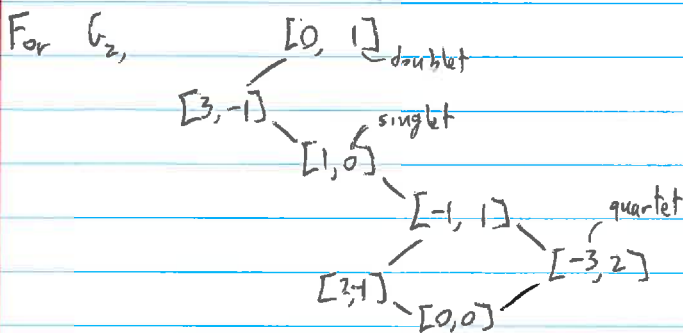 For G₂,
[0, 1]
doublet
[3, -1]
singlet
[1, 0]
[-1, 1]
quartet
[-3, 2]
[2, -1]
[0, 0]